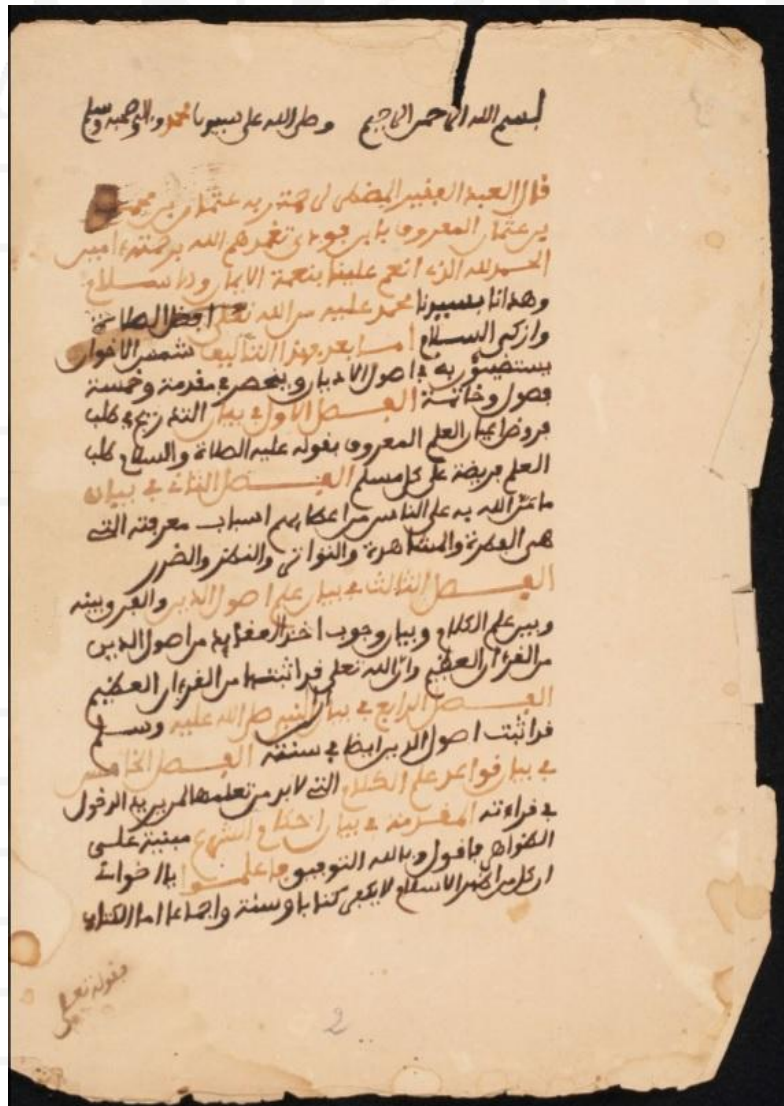 بسم الله الرحمن الرحيم وصلى الله على سيدنا محمد وءاله وصحبه وسلم
قال العبد الفقير المضطر لرحمة ربه عثمان بن محمد
بن عثمان المعروف بابن فودي تغمدهم الله برحمته ءامين
الحمد لله الذي انعم علينا بنعمة الايمان والاسلام
وهدانا بسيدنا محمد عليه من الله تعلى افضل الصلاة
وازكى السلام اما بعد فهذا التاليف شمس الاخوان
يستضيئون به في اصول الاديان وينحصر في مقدمة وخمسة
فصول وخاتمة الفصل الاول في بيان التدريج في طلب
فروض اعيان العلم المعروف بقوله عليه الصلاة والسلام طلب
العلم فريضة على كل مسلم الفصل الثاني في بيان
ما من الله به على الناس من اعطايهم اسباب معرفته التي
هي الفطرة والمشاهدة والتواتر والنظر والضرر
الفصل الثالث في بيان علم اصول الدين والفرق بينه
وبين علم الكلام وبيان وجوب اخذ العقايد من اصول الدين
من القرءان العظيم وان الله تعلى قد اثبتها من القرءان العظيم
الفصل الرابع في بيان ان النبي صلى الله عليه وسلم
قد اثبت اصول الدين ايضا في سنته الفصل الخامس
في بيان قواعد علم الكلام التي لا بد من تعلمها لمن يريد الدخول
في قراءته المقدمة في بيان احكام الشرع مبنية على
الظواهر فاقول وبالله التوفيق فاعلموا يا اخواني
ان كل من اظهر الاسلام لا يكفر كتابا وسنة واجماعا اما الكتاب
فقوله تعلى
2